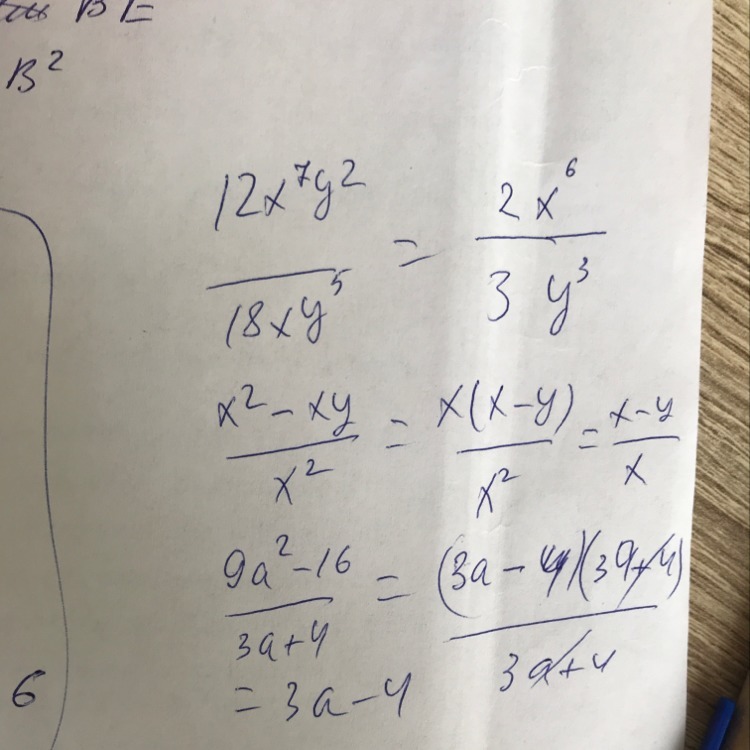 BE
B²
12x⁷y2 / 18xy⁵ = 2x⁶ / 3y³
x² - xy / x² = x(x-y) / x² = x-y / x
9a² - 16 / 3a+4 = (3a-4)(3a+4) / 3a+4
= 3a-4
6